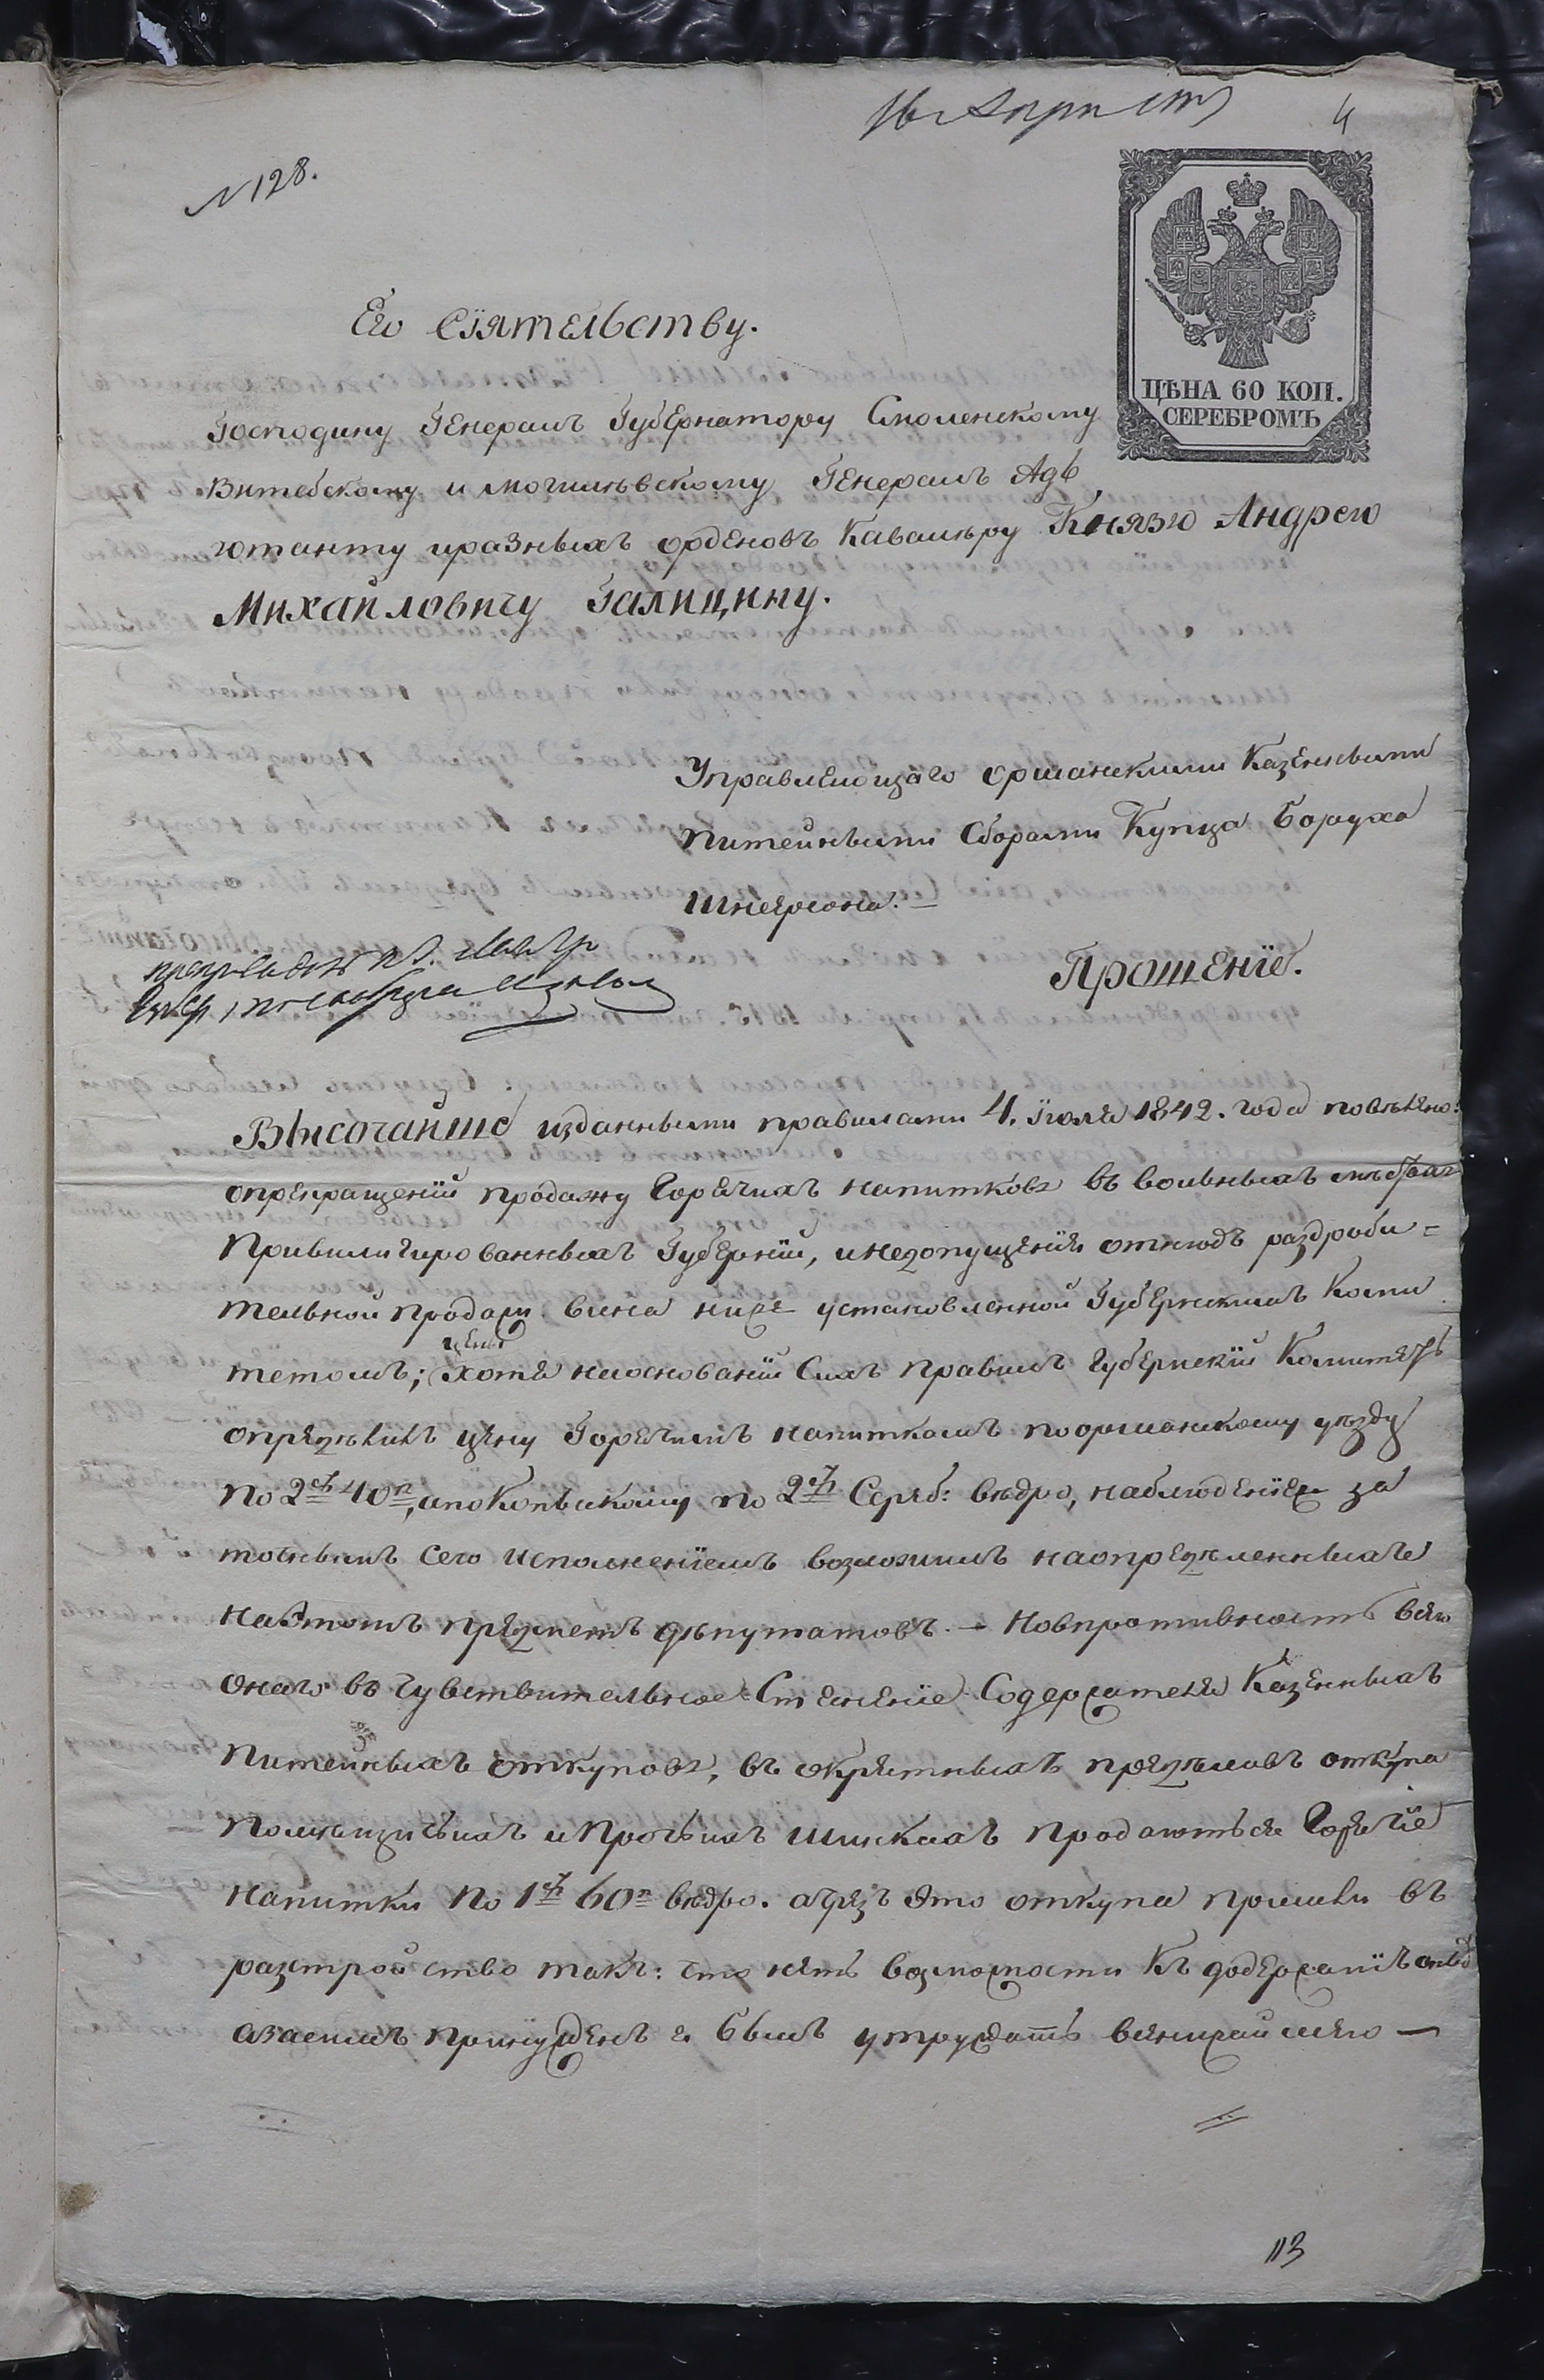 4
N 128.
ЦѢНА 60 КОП.
СЕРЕБРОМЪ
Его Сіятельству.
Господину Генералъ Губернатору Смоленскому
Витебскому и могилѣвскому Генералъ Адъ
ютанту иразныхъ орденовъ Кавалѣру Князю Андрею
Михайловичу Галицину.
Управлеющаго оршанскими Казенными
питейными Сборами Купца Боруха
Шнеерсона. —
Прошеніе.
Высочайше изданными правилами 4. Іюля 1842. года повѣлено:
опрекращеніи продажу Горячихъ напитковъ въ вольныхъ мѣстах
Привилигированныхъ Губерніи, инедопущенія отнюдъ раздроби=
тельной продажи вина ниже установленной Губернскимъ Коми
цены
тетомъ; хотя наоснованіи Сихъ правилъ Губернскій Комитетъ
опредѣлилъ цѣну Горячимъ напиткамъ пооршанскому уѣзду
по 2 40, апо Копыскому по 2 Сереб: вѣдро, наблюденіем за
точнымъ сего исполненіемъ возложилъ наопредѣленныхъ
наэтотъ предметъ депутатовъ. — Новпротивность всего
онаго въ чувствительное Стененіе Содержателя Казенныхъ
Питейныхъ откуповъ, въ окрестныхъ предѣловъ откупа
помѣщичьихъ ипрочьихъ шинкахъ продаютьсе Горячіе
напитки по 1 60 вѣдро. ачрезъ это откупа пришли въ
разстройство такъ: что нетъ возможности Къ додержаніѣ
принужденъ я былъ утруждать
113